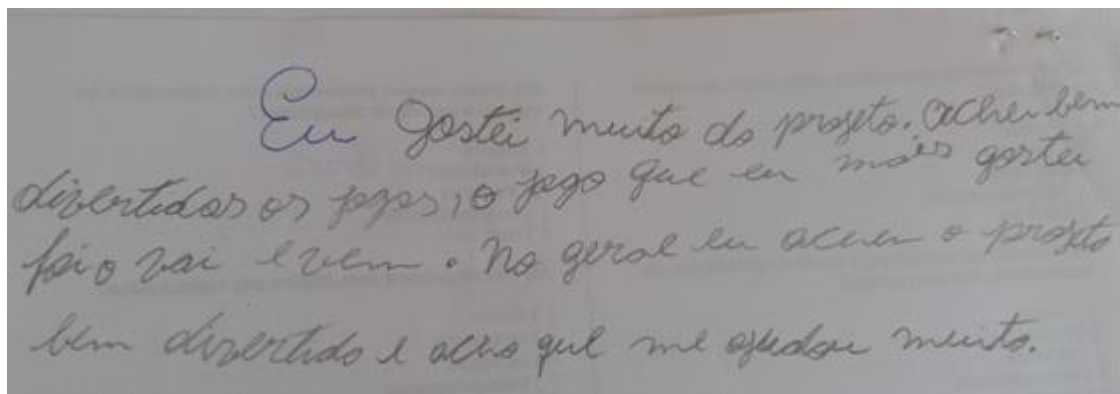 Eu Gostei muito do projeto. achei bem
divertidos os jogos, o jogo que eu mais gostei
foi o vai e vem. No geral eu achei o projeto
bem divertido e acho que me ajudou muito.